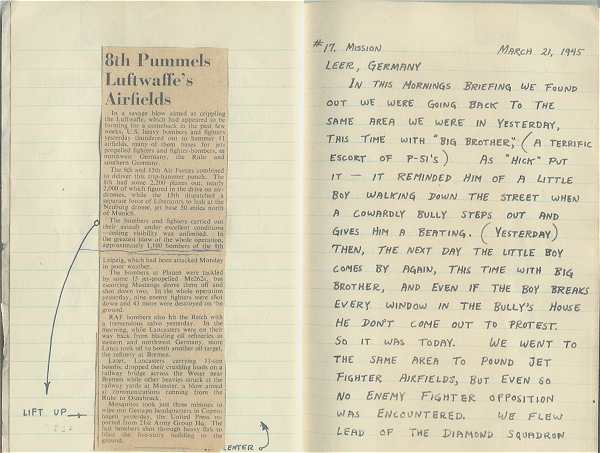 8th Pummels
Luftwaffe's
Airfields
In a savage blow aimed at crippling
the Luftwaffe, which had appeared to be
forming for a comeback in the past few
weeks, U.S. heavy bombers and fighters
yesterday thundered out to hammer 11
airfields, many of them bases for jet-
propelled fighters and fighter-bombers, in
northwest Germany, the Ruhr and
southern Germany.
The 8th and 15th Air Forces combined
to deliver this trip-hammer punch. The
8th had some 2,200 planes out, nearly
2,000 of which figured in the drive on air-
dromes, while the 15th dispatched a
separate force of Liberators to bash at the
Neuburg drome, jet base 50 miles north
of Munich.
The bombers and fighters carried out
their assault under excellent conditions
—visibility was unlimited. In
the greatest blow of the whole operation,
approximately 1,300 bombers of the 8th
Leipzig, which had been attacked Monday
in poor weather.
The bombers at Plauen were tackled
by some 15 jet-propelled Me262s, but
escorting Mustangs drove them off and
shot down two. In the whole operation
yesterday, nine enemy fighters were shot
down and 43 more were destroyed on the
ground.
RAF bombers also hit the Reich with
a tremendous salvo yesterday. In the
morning, while Lancasters were on their
way back from blasting oil refineries in
western and northwest Germany, more
Lancs took off to bomb another oil target,
the refinery at Bremen.
Later, Lancasters carrying 11-ton
bombs, dropped their crushing loads on a
railway bridge across the Weser near
Bremen while other heavies struck at the
railway yards at Munster, a blow aimed
at communications running from the
Ruhr to Osnabruck.
Mosquitos took just three minutes to
wipe out Gestapo headquarters in Copen-
hagen yesterday, the United Press re-
ported from 21st Army Group Hq. The
fast bombers shot through heavy flak to
blast the five-story building to the
ground.
LIFT UP
CENTER
#17. Mission March 21, 1945
Leer, Germany
In this mornings briefing we found
out we were going back to the
same area we were in yesterday,
this time with "Big Brother", (a terrific
escort of P-51's) As "Hick" put
it — it reminded him of a little
boy walking down the street when
a cowardly bully steps out and
gives him a beating. (Yesterday)
Then, the next day the little boy
comes by again, this time with big
brother, and even if the boy breaks
every window in the bully's house
he don't come out to protest.
So it was today. We went to
the same area to pound jet
fighter airfields, but even so
no enemy fighter opposition
was encountered. We flew
lead of the diamond squadron